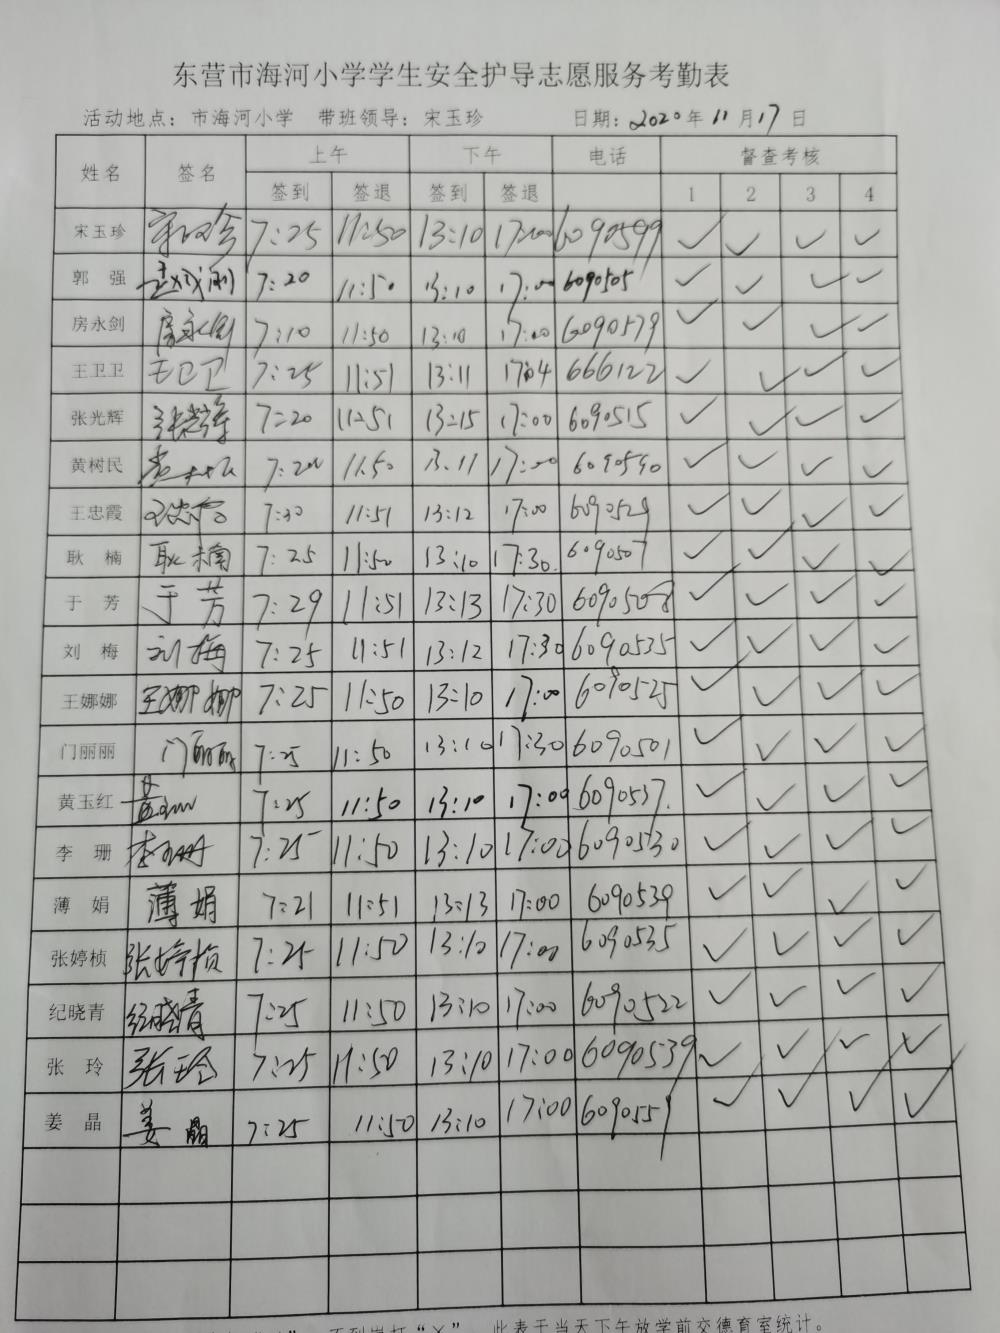 东营市海河小学学生安全护导志愿服务考勤表
活动地点：市海河小学 带班领导：宋玉珍 日期：2020年11月17日
姓名 签名 上午 下午 电话 督查考核
签到 签退 签到 签退 1 2 3 4
宋玉珍 7:25 11:50 13:10 17:00 6090599 ✓ ✓ ✓ ✓
郭强 7:20 11:50 13:10 17:00 6090505 ✓ ✓ ✓ ✓
房永剑 房永剑 7:10 11:50 13:10 17:00 6090579 ✓ ✓ ✓ ✓
王卫卫 王卫卫 7:25 11:51 13:11 17:04 666122 ✓ ✓ ✓ ✓
张光辉 张光辉 7:20 11:51 13:15 17:00 6090515 ✓ ✓ ✓ ✓
黄树民 7:20 11:50 13:11 17:00 6090540 ✓ ✓ ✓ ✓
王忠霞 王忠霞 7:30 11:51 13:12 17:00 6090529 ✓ ✓ ✓ ✓
耿楠 耿楠 7:25 11:50 13:10 17:30 6090507 ✓ ✓ ✓ ✓
于芳 于芳 7:29 11:51 13:13 17:30 6090508 ✓ ✓ ✓ ✓
刘梅 刘梅 7:25 11:51 13:12 17:30 6090535 ✓ ✓ ✓ ✓
王娜娜 王娜娜 7:25 11:50 13:10 17:00 6090525 ✓ ✓ ✓ ✓
门丽丽 门丽丽 7:25 11:50 13:10 17:30 6090501 ✓ ✓ ✓ ✓
黄玉红 7:25 11:50 13:10 17:00 6090537. ✓ ✓ ✓ ✓
李珊 李珊 7:25 11:50 13:10 17:00 6090530 ✓ ✓ ✓ ✓
薄娟 薄娟 7:21 11:51 13:13 17:00 6090539 ✓ ✓ ✓ ✓
张婷桢 张婷桢 7:25 11:50 13:10 17:00 6090535 ✓ ✓ ✓ ✓
纪晓青 纪晓青 7:25 11:50 13:10 17:00 6090522 ✓ ✓ ✓ ✓
张玲 张玲 7:25 11:50 13:10 17:00 6090539 ✓ ✓ ✓ ✓
姜晶 姜晶 7:25 11:50 13:10 17:00 6090559 ✓ ✓ ✓ ✓
“×”，此表于当天下午放学前交德育室统计。